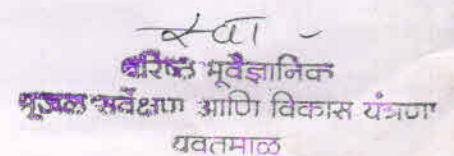 स्वा -
वरिष्ठ भूवैज्ञानिक
भूजल सर्वेक्षण आणि विकास यंत्रणा
यवतमाळ